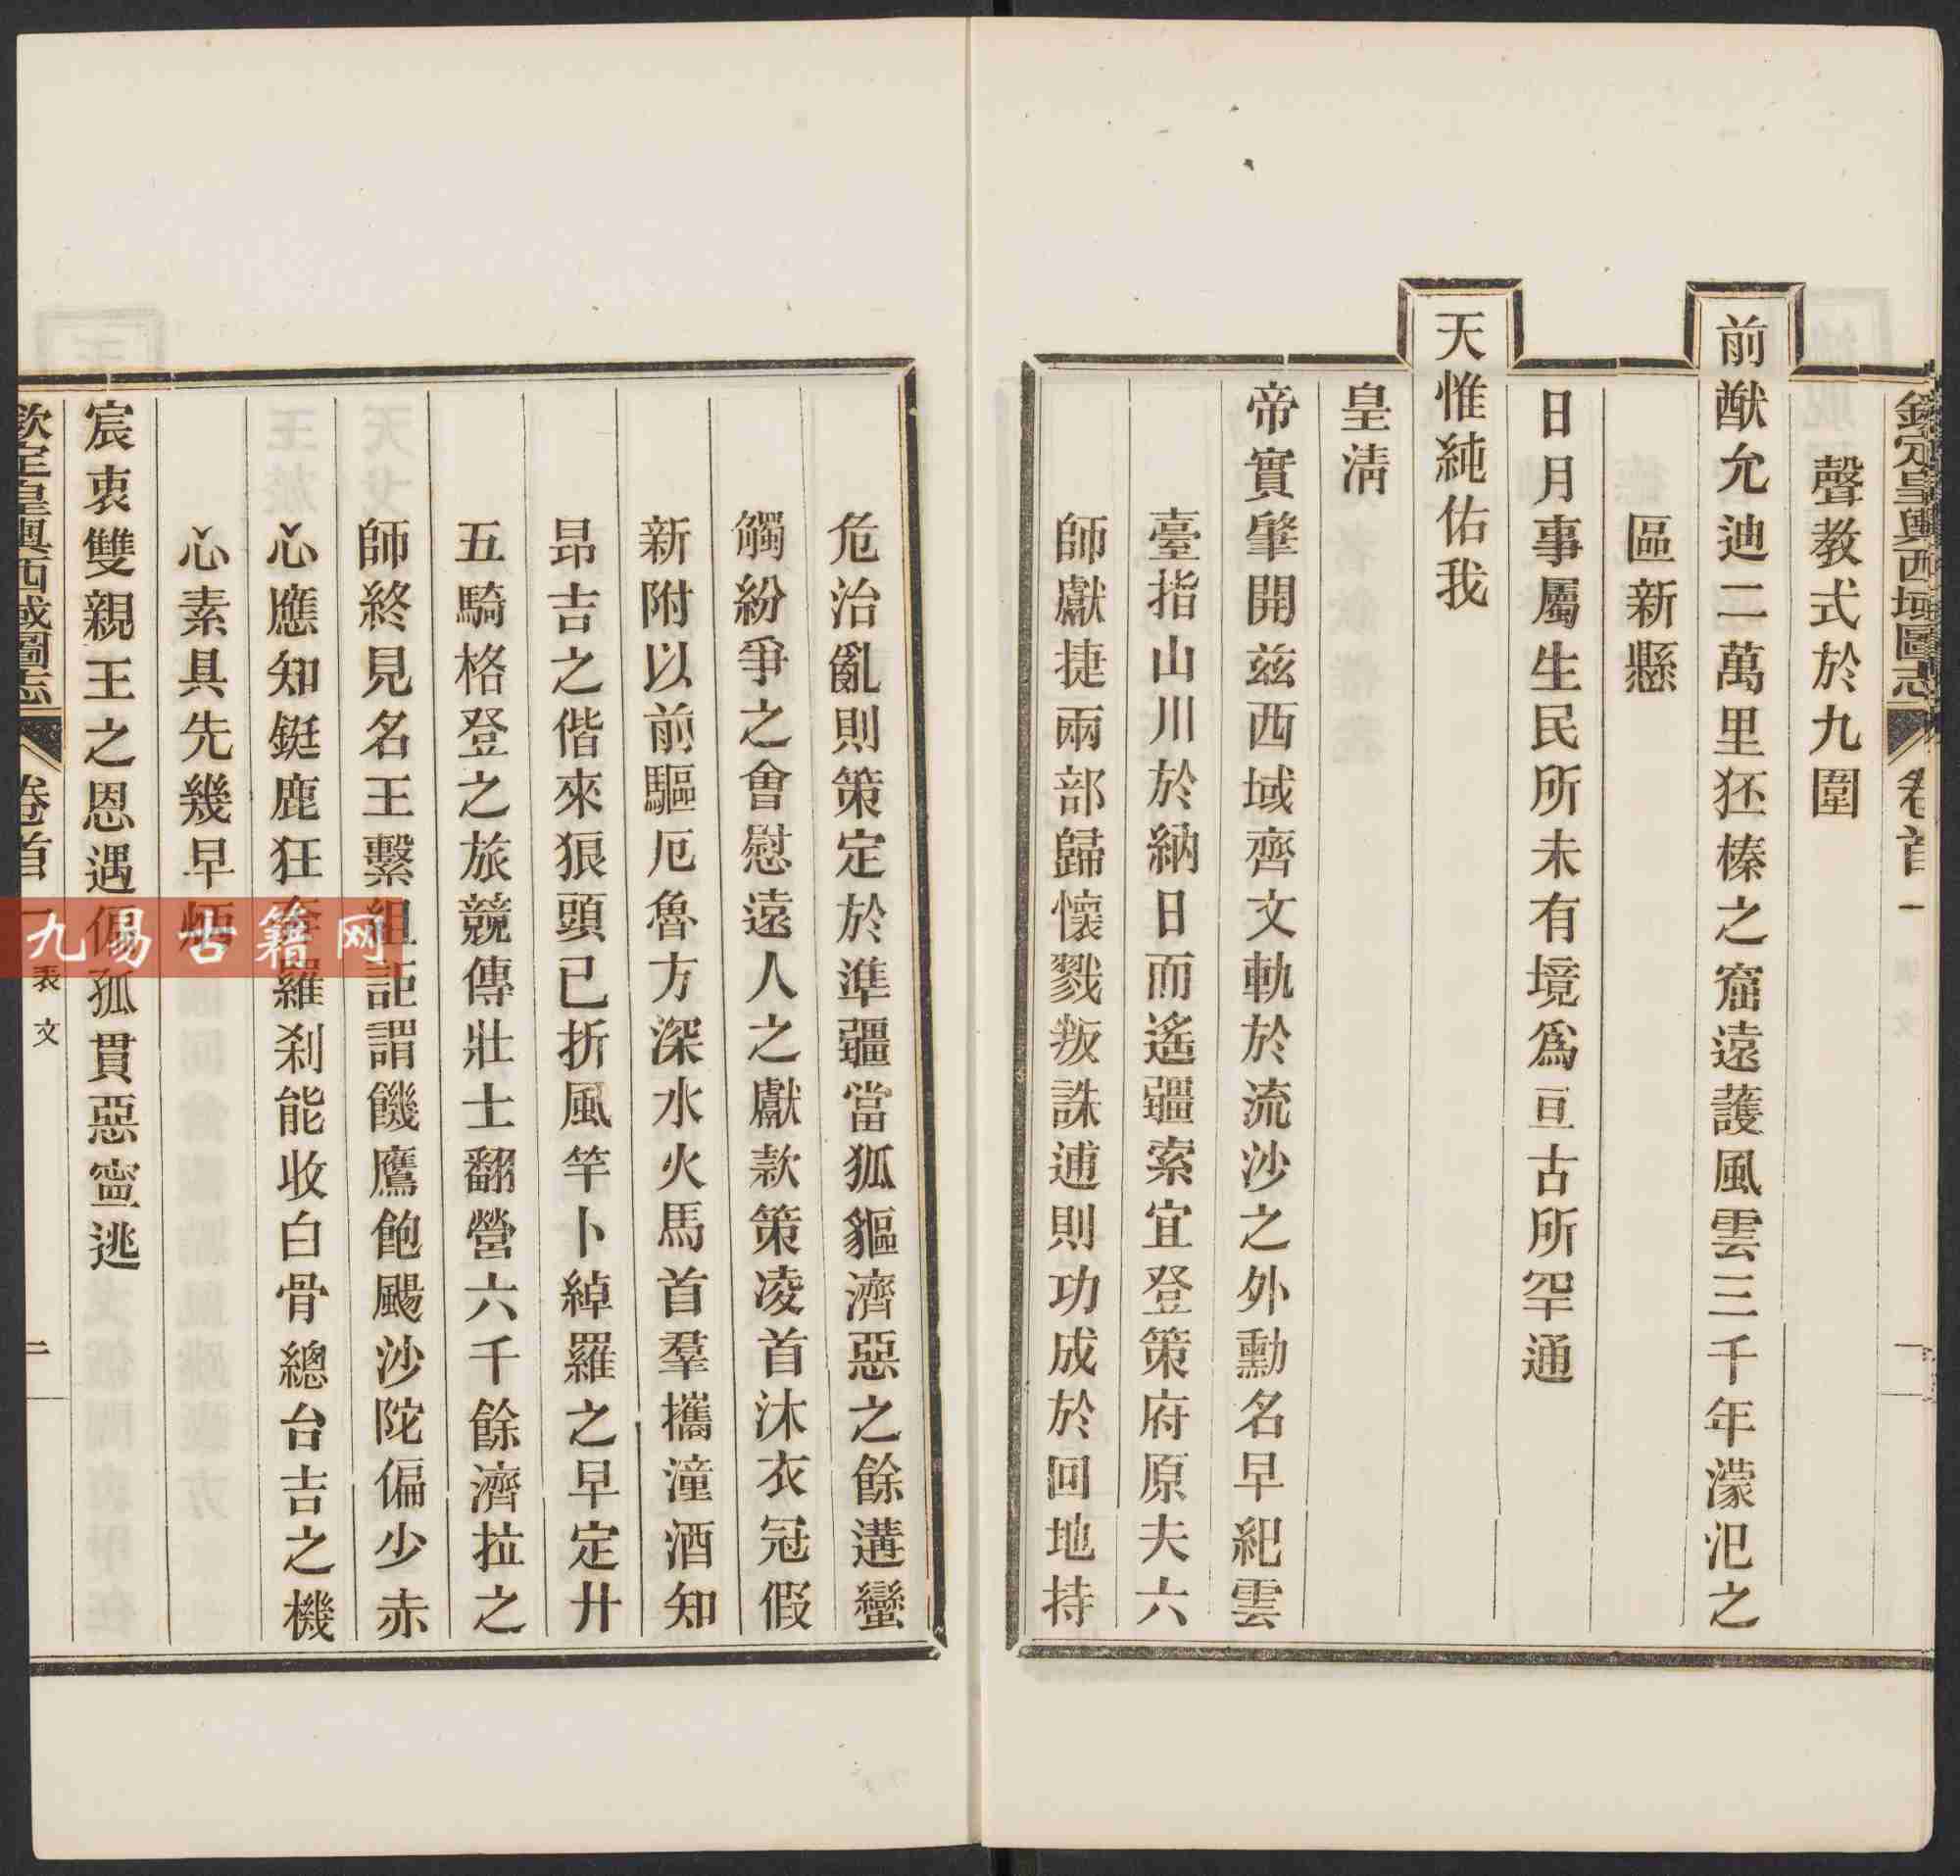 欽定皇輿西域圖志 卷首一
聲教式於九圍
前猷允迪二萬里狉榛之窟遠護風雲三千年濛汜之
區新懸
日月事屬生民所未有境爲亘古所罕通
天惟純佑我
皇清
帝實肇開兹西域齊文軌於流沙之外勳名早紀雲
臺指山川於納日而遙疆索宜登策府原夫六
師獻捷兩部歸懷戮叛誅逋則功成於回地持
危治亂則策定於準疆當狐貙濟惡之餘遘蠻
觸紛爭之會慰遠人之獻款策凌首沐衣冠假
新附以前驅厄魯方深水火馬首羣攜湩酒知
昂吉之偕來狼頭已折風竿卜綽羅之早定廾
五騎格登之旅競傳壯士翻營六千餘濟拉之
師終見名王繫組詎謂饑鷹飽颺沙陀偏少赤
心應知鋌鹿狂奔羅刹能收白骨總台吉之機
心素具先幾早炳
宸衷雙親王之恩遇偏孤貫惡寧逃
欽定皇輿西域圖志 卷首一 表文 二
九易古籍网